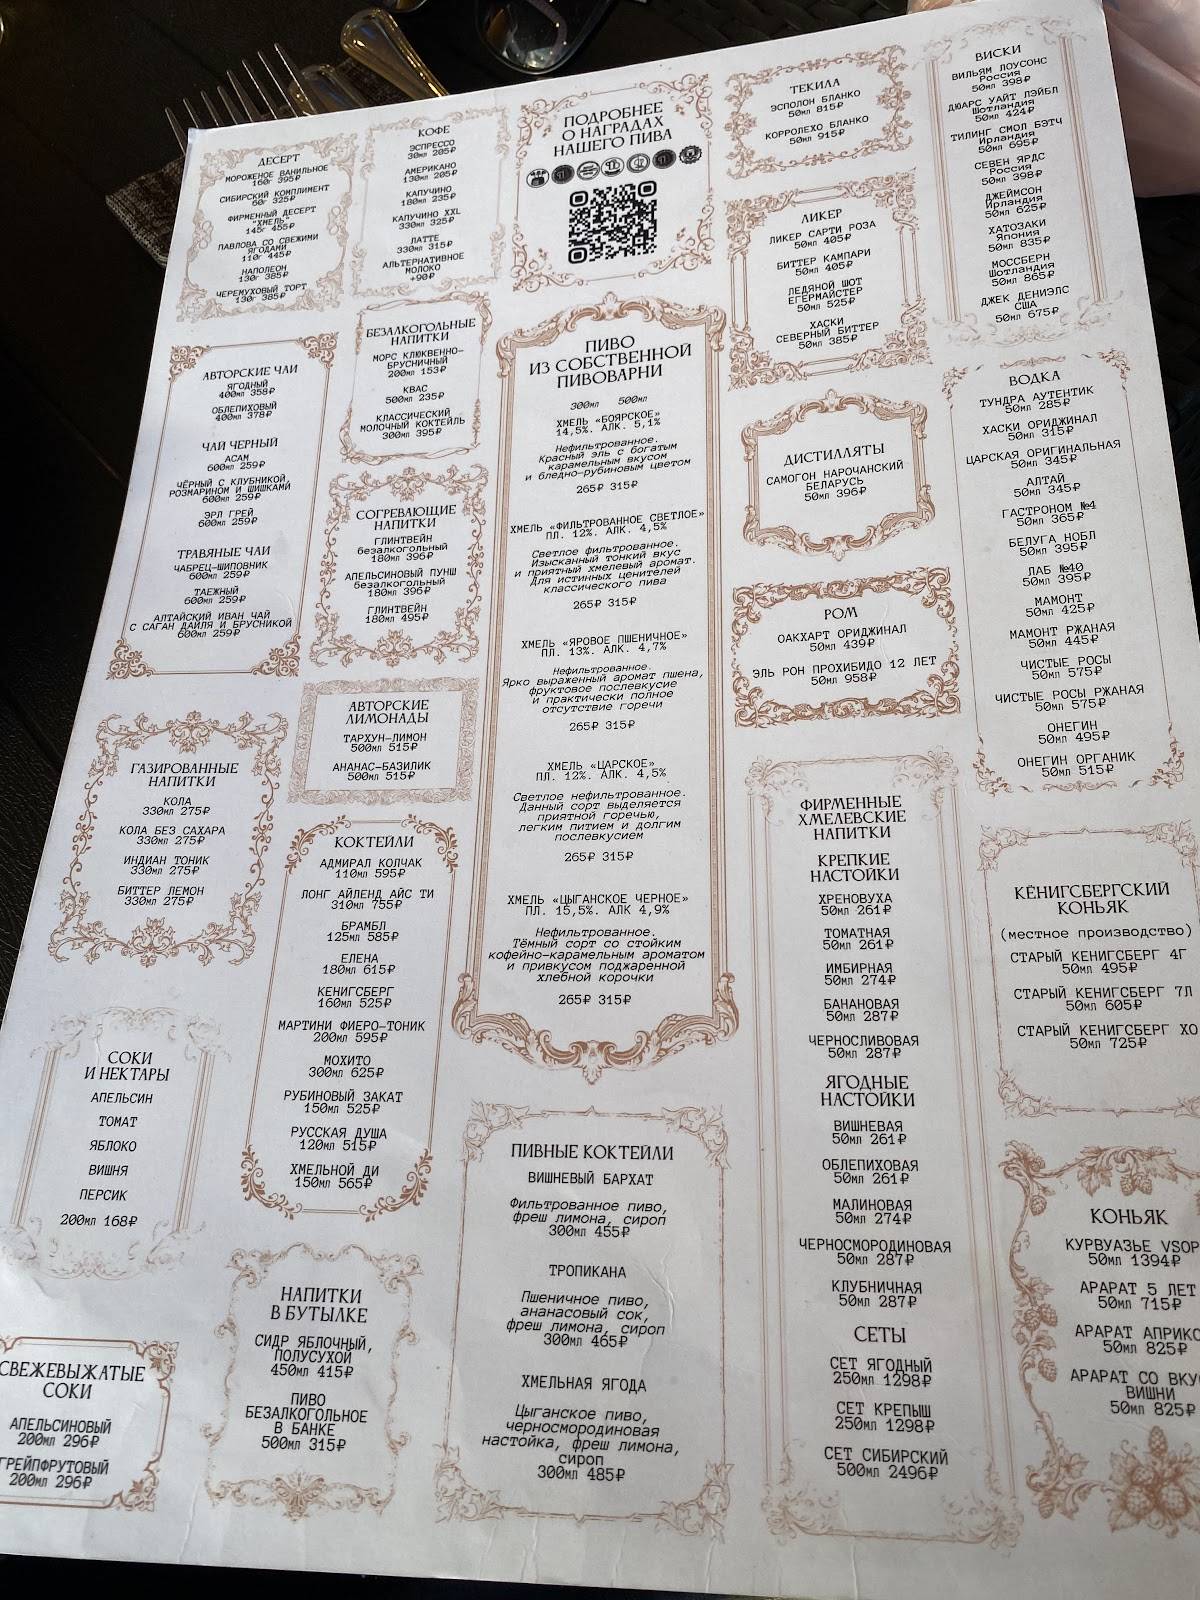 ДЕСЕРТ
МОРОЖЕНОЕ ВАНИЛЬНОЕ
160г 395₽
СИБИРСКИЙ КОМПЛИМЕНТ
60г 325₽
ФИРМЕННЫЙ ДЕСЕРТ
"ХМЕЛЬ"
145г 455₽
ПАВЛОВА СО СВЕЖИМИ
ЯГОДАМИ
110г 445₽
НАПОЛЕОН
130г 385₽
ЧЕРЕМУХОВЫЙ ТОРТ
130г 385₽
АВТОРСКИЕ ЧАИ
ЯГОДНЫЙ
400мл 358₽
ОБЛЕПИХОВЫЙ
400мл 378₽
ЧАЙ ЧЕРНЫЙ
АСАМ
600мл 259₽
ЧЁРНЫЙ С КЛУБНИКОЙ,
РОЗМАРИНОМ И ШИШКАМИ
600мл 259₽
ЭРЛ ГРЕЙ
600мл 259₽
ТРАВЯНЫЕ ЧАИ
ЧАБРЕЦ-ШИПОВНИК
600мл 259₽
ТАЕЖНЫЙ
600мл 259₽
АЛТАЙСКИЙ ИВАН ЧАЙ
С САГАН ДАЙЛЯ И БРУСНИКОЙ
600мл 259₽
ГАЗИРОВАННЫЕ
НАПИТКИ
КОЛА
330мл 275₽
КОЛА БЕЗ САХАРА
330мл 275₽
ИНДИАН ТОНИК
330мл 275₽
БИТТЕР ЛЕМОН
330мл 275₽
СОКИ
И НЕКТАРЫ
АПЕЛЬСИН
ТОМАТ
ЯБЛОКО
ВИШНЯ
ПЕРСИК
200мл 168₽
СВЕЖЕВЫЖАТЫЕ
СОКИ
АПЕЛЬСИНОВЫЙ
200мл 296₽
ГРЕЙПФРУТОВЫЙ
200мл 296₽
КОФЕ
ЭСПРЕССО
30мл 205₽
АМЕРИКАНО
130мл 205₽
КАПУЧИНО
180мл 235₽
КАПУЧИНО XXL
330мл 325₽
ЛАТТЕ
330мл 315₽
АЛЬТЕРНАТИВНОЕ
МОЛОКО
+90₽
БЕЗАЛКОГОЛЬНЫЕ
НАПИТКИ
МОРС КЛЮКВЕННО-
БРУСНИЧНЫЙ
200мл 153₽
КВАС
500мл 235₽
КЛАССИЧЕСКИЙ
МОЛОЧНЫЙ КОКТЕЙЛЬ
300мл 395₽
СОГРЕВАЮЩИЕ
НАПИТКИ
ГЛИНТВЕЙН
безалкогольный
180мл 396₽
АПЕЛЬСИНОВЫЙ ПУНШ
безалкогольный
180мл 396₽
ГЛИНТВЕЙН
180мл 495₽
АВТОРСКИЕ
ЛИМОНАДЫ
ТАРХУН-ЛИМОН
500мл 515₽
АНАНАС-БАЗИЛИК
500мл 515₽
КОКТЕЙЛИ
АДМИРАЛ КОЛЧАК
110мл 595₽
ЛОНГ АЙЛЕНД АЙС ТИ
310мл 755₽
БРАМБЛ
125мл 585₽
ЕЛЕНА
180мл 615₽
КЕНИГСБЕРГ
160мл 525₽
МАРТИНИ ФИЕРО-ТОНИК
200мл 595₽
МОХИТО
300мл 625₽
РУБИНОВЫЙ ЗАКАТ
150мл 525₽
РУССКАЯ ДУША
120мл 515₽
ХМЕЛЬНОЙ ДИ
150мл 565₽
НАПИТКИ
В БУТЫЛКЕ
СИДР ЯБЛОЧНЫЙ,
ПОЛУСУХОЙ
450мл 415₽
ПИВО
БЕЗАЛКОГОЛЬНОЕ
В БАНКЕ
500мл 315₽
ПОДРОБНЕЕ
О НАГРАДАХ
НАШЕГО ПИВА
ПИВО
ИЗ СОБСТВЕННОЙ
ПИВОВАРНИ
300мл 500мл
ХМЕЛЬ «БОЯРСКОЕ»
14,5%. АЛК. 5,1%
Нефильтрованное.
Красный эль с богатым
карамельным вкусом
и бледно-рубиновым цветом
265₽ 315₽
ХМЕЛЬ «ФИЛЬТРОВАННОЕ СВЕТЛОЕ»
ПЛ. 12%. АЛК. 4,5%
Светлое фильтрованное.
Изысканный тонкий вкус
и приятный хмелевый аромат.
Для истинных ценителей
классического пива
265₽ 315₽
ХМЕЛЬ «ЯРОВОЕ ПШЕНИЧНОЕ»
ПЛ. 13%. АЛК. 4,7%
Нефильтрованное.
Ярко выраженный аромат пшена,
фруктовое послевкусие
и практически полное
отсутствие горечи
265₽ 315₽
ХМЕЛЬ «ЦАРСКОЕ»
ПЛ. 12%. АЛК. 4,5%
Светлое нефильтрованное.
Данный сорт выделяется
приятной горечью,
легким питием и долгим
послевкусием
265₽ 315₽
ХМЕЛЬ «ЦЫГАНСКОЕ ЧЕРНОЕ»
ПЛ. 15,5%. АЛК 4,9%
Нефильтрованное.
Тёмный сорт со стойким
кофейно-карамельным ароматом
и привкусом поджаренной
хлебной корочки
265₽ 315₽
ПИВНЫЕ КОКТЕЙЛИ
ВИШНЕВЫЙ БАРХАТ
Фильтрованное пиво,
фреш лимона, сироп
300мл 455₽
ТРОПИКАНА
Пшеничное пиво,
ананасовый сок,
фреш лимона, сироп
300мл 465₽
ХМЕЛЬНАЯ ЯГОДА
Цыганское пиво,
черносмородиновая
настойка, фреш лимона,
сироп
300мл 485₽
ТЕКИЛА
ЭСПОЛОН БЛАНКО
50мл 815₽
КОРРОЛЕХО БЛАНКО
50мл 915₽
ЛИКЕР
ЛИКЕР САРТИ РОЗА
50мл 405₽
БИТТЕР КАМПАРИ
50мл 405₽
ЛЕДЯНОЙ ШОТ
ЕГЕРМАЙСТЕР
50мл 525₽
ХАСКИ
СЕВЕРНЫЙ БИТТЕР
50мл 385₽
ДИСТИЛЛЯТЫ
САМОГОН НАРОЧАНСКИЙ
БЕЛАРУСЬ
50мл 396₽
РОМ
ОАКХАРТ ОРИДЖИНАЛ
50мл 439₽
ЭЛЬ РОН ПРОХИБИДО 12 ЛЕТ
50мл 958₽
ФИРМЕННЫЕ
ХМЕЛЕВСКИЕ
НАПИТКИ
КРЕПКИЕ
НАСТОЙКИ
ХРЕНОВУХА
50мл 261₽
ТОМАТНАЯ
50мл 261₽
ИМБИРНАЯ
50мл 274₽
БАНАНОВАЯ
50мл 287₽
ЧЕРНОСЛИВОВАЯ
50мл 287₽
ЯГОДНЫЕ
НАСТОЙКИ
ВИШНЕВАЯ
50мл 261₽
ОБЛЕПИХОВАЯ
50мл 261₽
МАЛИНОВАЯ
50мл 274₽
ЧЕРНОСМОРОДИНОВАЯ
50мл 287₽
КЛУБНИЧНАЯ
50мл 287₽
СЕТЫ
СЕТ ЯГОДНЫЙ
250мл 1298₽
СЕТ КРЕПЫШ
250мл 1298₽
СЕТ СИБИРСКИЙ
500мл 2496₽
ВИСКИ
ВИЛЬЯМ ЛОУСОНС
Россия
50мл 398₽
ДЮАРС УАЙТ ЛЭЙБЛ
Шотландия
50мл 424₽
ТИЛИНГ СМОЛ БЭТЧ
Ирландия
50мл 695₽
СЕВЕН ЯРДС
Россия
50мл 398₽
ДЖЕЙМСОН
Ирландия
50мл 625₽
ХАТОЗАКИ
Япония
50мл 835₽
МОССБЕРН
Шотландия
50мл 865₽
ДЖЕК ДЕНИЭЛС
США
50мл 675₽
ВОДКА
ТУНДРА АУТЕНТИК
50мл 285₽
ХАСКИ ОРИДЖИНАЛ
50мл 315₽
ЦАРСКАЯ ОРИГИНАЛЬНАЯ
50мл 345₽
АЛТАЙ
50мл 345₽
ГАСТРОНОМ №4
50мл 365₽
БЕЛУГА НОБЛ
50мл 395₽
ЛАБ №40
50мл 395₽
МАМОНТ
50мл 425₽
МАМОНТ РЖАНАЯ
50мл 445₽
ЧИСТЫЕ РОСЫ
50мл 575₽
ЧИСТЫЕ РОСЫ РЖАНАЯ
50мл 575₽
ОНЕГИН
50мл 495₽
ОНЕГИН ОРГАНИК
50мл 515₽
КЁНИГСБЕРГСКИЙ
КОНЬЯК
(местное производство)
СТАРЫЙ КЕНИГСБЕРГ 4Г
50мл 495₽
СТАРЫЙ КЕНИГСБЕРГ 7Л
50мл 605₽
СТАРЫЙ КЕНИГСБЕРГ ХО
50мл 725₽
КОНЬЯК
КУРВУАЗЬЕ VSOP
50мл 1394₽
АРАРАТ 5 ЛЕТ
50мл 715₽
АРАРАТ АПРИКО
50мл 825₽
АРАРАТ СО ВКУ
ВИШНИ
50мл 825₽